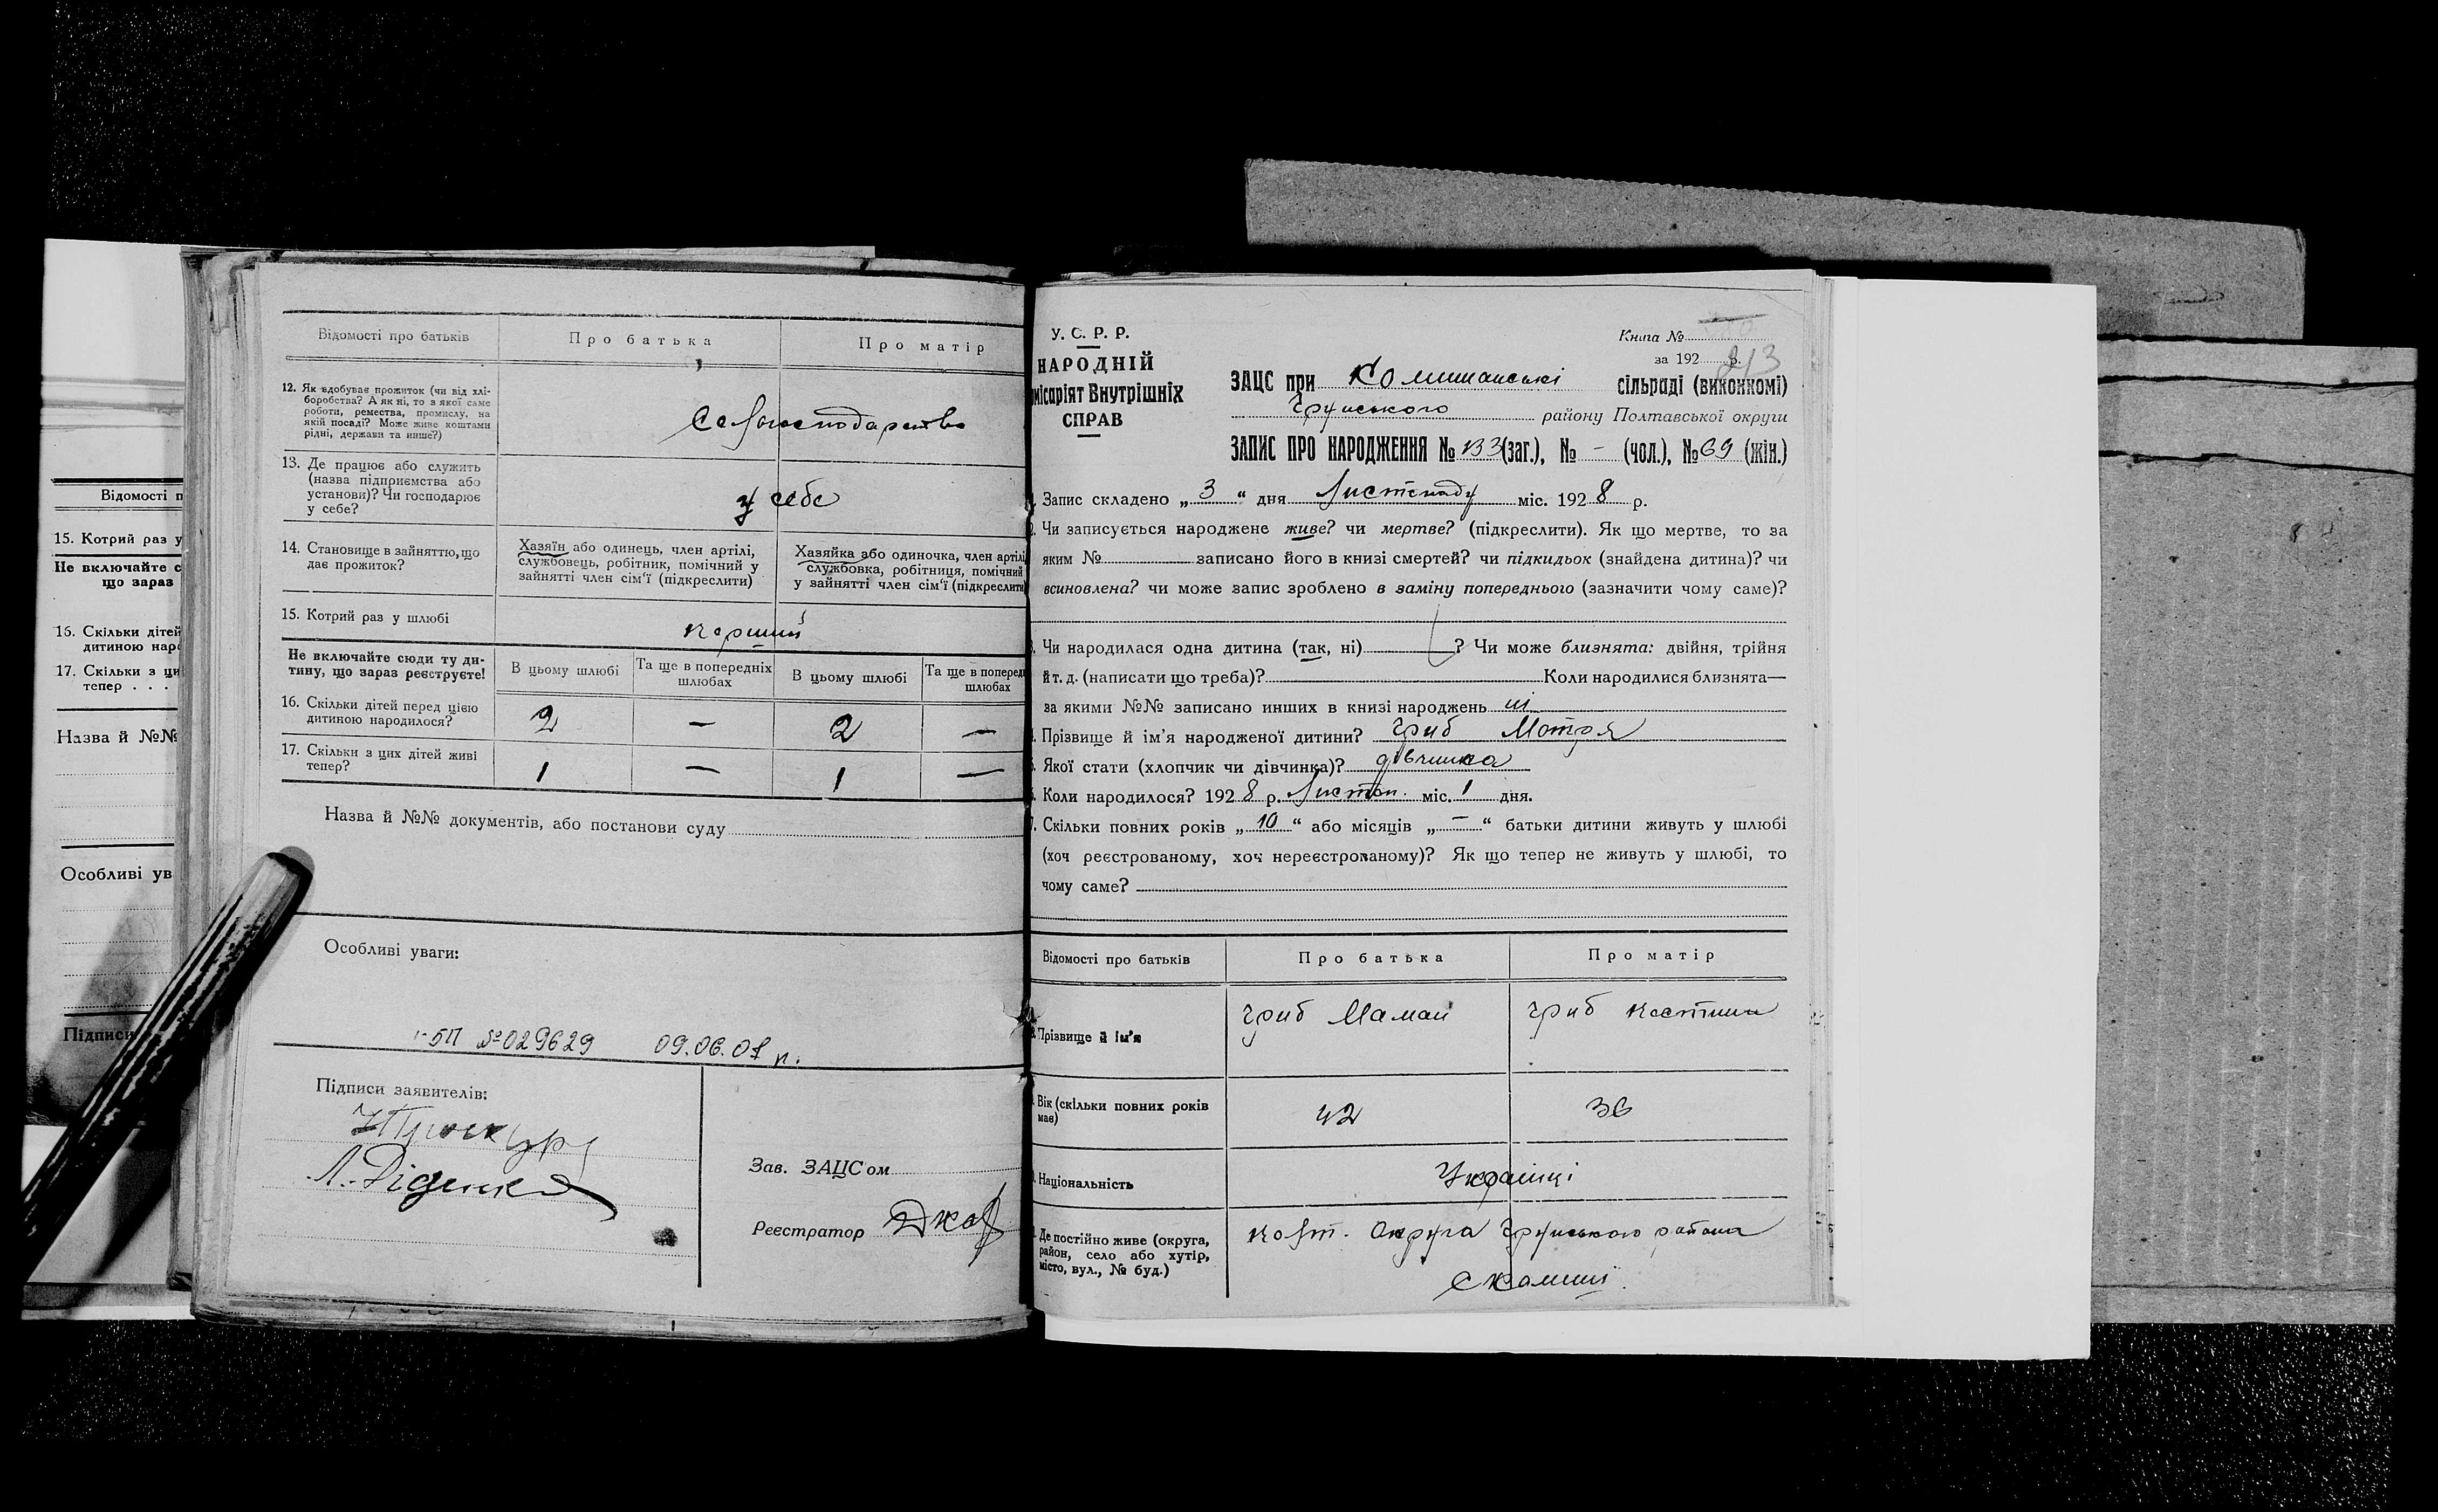 Відомості п
15. Котрий раз у
Не включайте с
що зараз
16. Скільки дітей
дитиною наро
17. Скільки з ци
тепер . . .
Назва й №№
Особливі ув
Підписи
Відомості про батьків
Про батька
Про матір
12. Як здобуває прожиток (чи від хлі-
боробства? А як ні, то з якої саме
роботи, ремества, промислу, на
якій посаді? Може живе коштами
рідні, держави та инше?)
13. Де працює або служить
(назва підприємства або
установи)? Чи господарює
у себе?
у себе
14. Становище в зайняттю, що
дає прожиток?
Хазяїн або одинець, член артілі,
службовець, робітник, помічний у
зайнятті член сім'ї (підкреслити)
Хазяйка або одиночка, член артілі
службовка, робітниця, помічний
у зайнятті член сім'ї (підкреслити
15. Котрий раз у шлюбі
перший
Не включайте сюди ту ди-
тину, що зараз реєструєте!
В цьому шлюбі
Та ще в попередніх
шлюбах
В цьому шлюбі
Та ще в поперед
шлюбах
16. Скільки дітей перед цією
дитиною народилося?
2 — 2 —
17. Скільки з цих дітей живі
тепер?
1 — 1 —
Назва й №№ документів, або постанови суду
Особливі уваги:
№ 029629 09.06.01 р.
Підписи заявителів:
Л. Діденко
Зав. ЗАЦС'ом
Реєстратор
У. С. Р. Р.
НАРОДНІЙ
місаріят Внутрішніх
СПРАВ
Книга №
за 192 8 р.
213
ЗАЦС при Комишанські сільраді (виконкомі)
Грунського району Полтавської округи
ЗАПИС ПРО НАРОДЖЕННЯ № 133 (заг.), № - (чол.), № 69 (жін.)
Запис складено „ 3 “ дня Листопаду міс. 192 8 р.
Чи записується народжене живе? чи мертве? (підкреслити). Як що мертве, то за
яким № записано його в книзі смертей? чи підкидьок (знайдена дитина)? чи
всиновлена? чи може запис зроблено в заміну попереднього (зазначити чому саме)?
Чи народилася одна дитина (так, ні) ? Чи може близнята: двійня, трійня
й т. д. (написати що треба)? Коли народилися близнята—
за якими №№ записано инших в книзі народжень ні
Прізвище й ім'я народженої дитини? Гриб Мотря
Якої стати (хлопчик чи дівчинка)? дівчинка
Коли народилося? 192 8 р. Листоп. міс. 1 дня.
Скільки повних років „ 10 “ або місяців „ — “ батьки дитини живуть у шлюбі
(хоч реєстрованому, хоч нереєстрованому)? Як що тепер не живуть у шлюбі, то
чому саме?
Відомості про батьків
Про батька
Про матір
Прізвище й ім'я
Гриб Мамай
Гриб
Вік (скільки повних років
має)
42
36
Національність
Українці
Де постійно живе (округа,
район, село або хутір,
місто, вул., № буд.)
Полт. Округа Грунського района